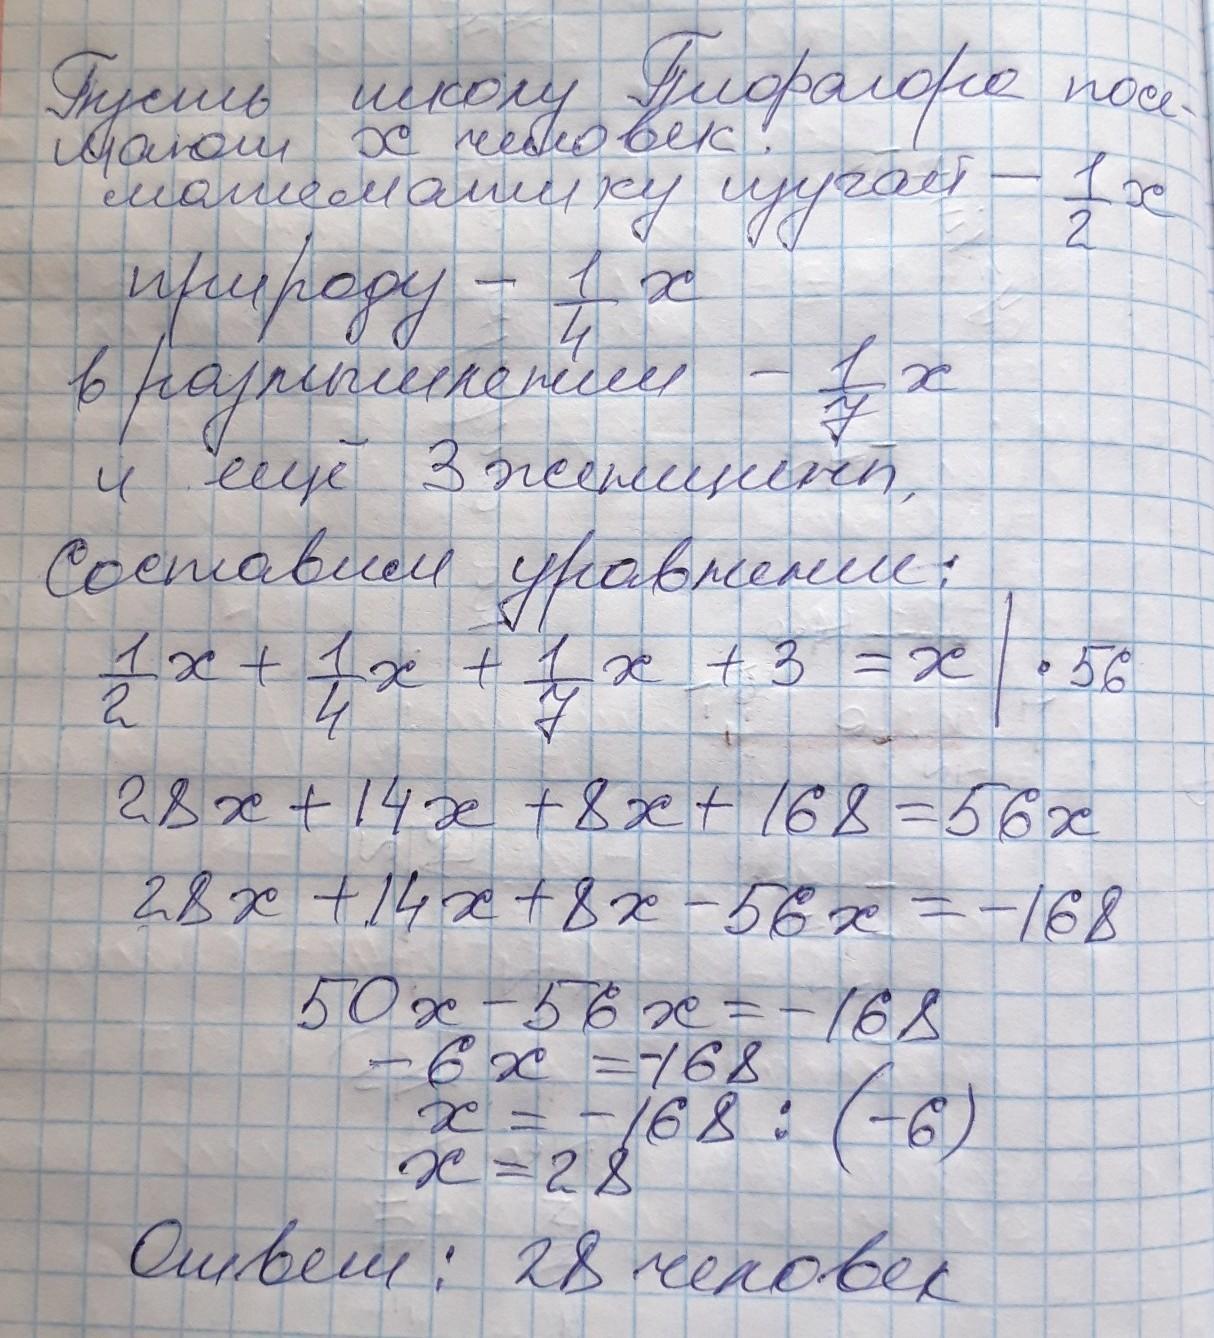 Пусть школу Пифагора посе-
щают x человек.
математику изучает — 1/2 x
природу – 1/4 x
в размышлении – 1/7 x
и ещё 3 женщины,
Составим уравнение:
1/2 x + 1/4 x + 1/7 x + 3 = x | · 56
28x + 14x + 8x + 168 = 56x
28x + 14x + 8x - 56x = -168
50x - 56x = -168
-6x = -168
x = -168 : (-6)
x = 28
Ответ: 28 человек